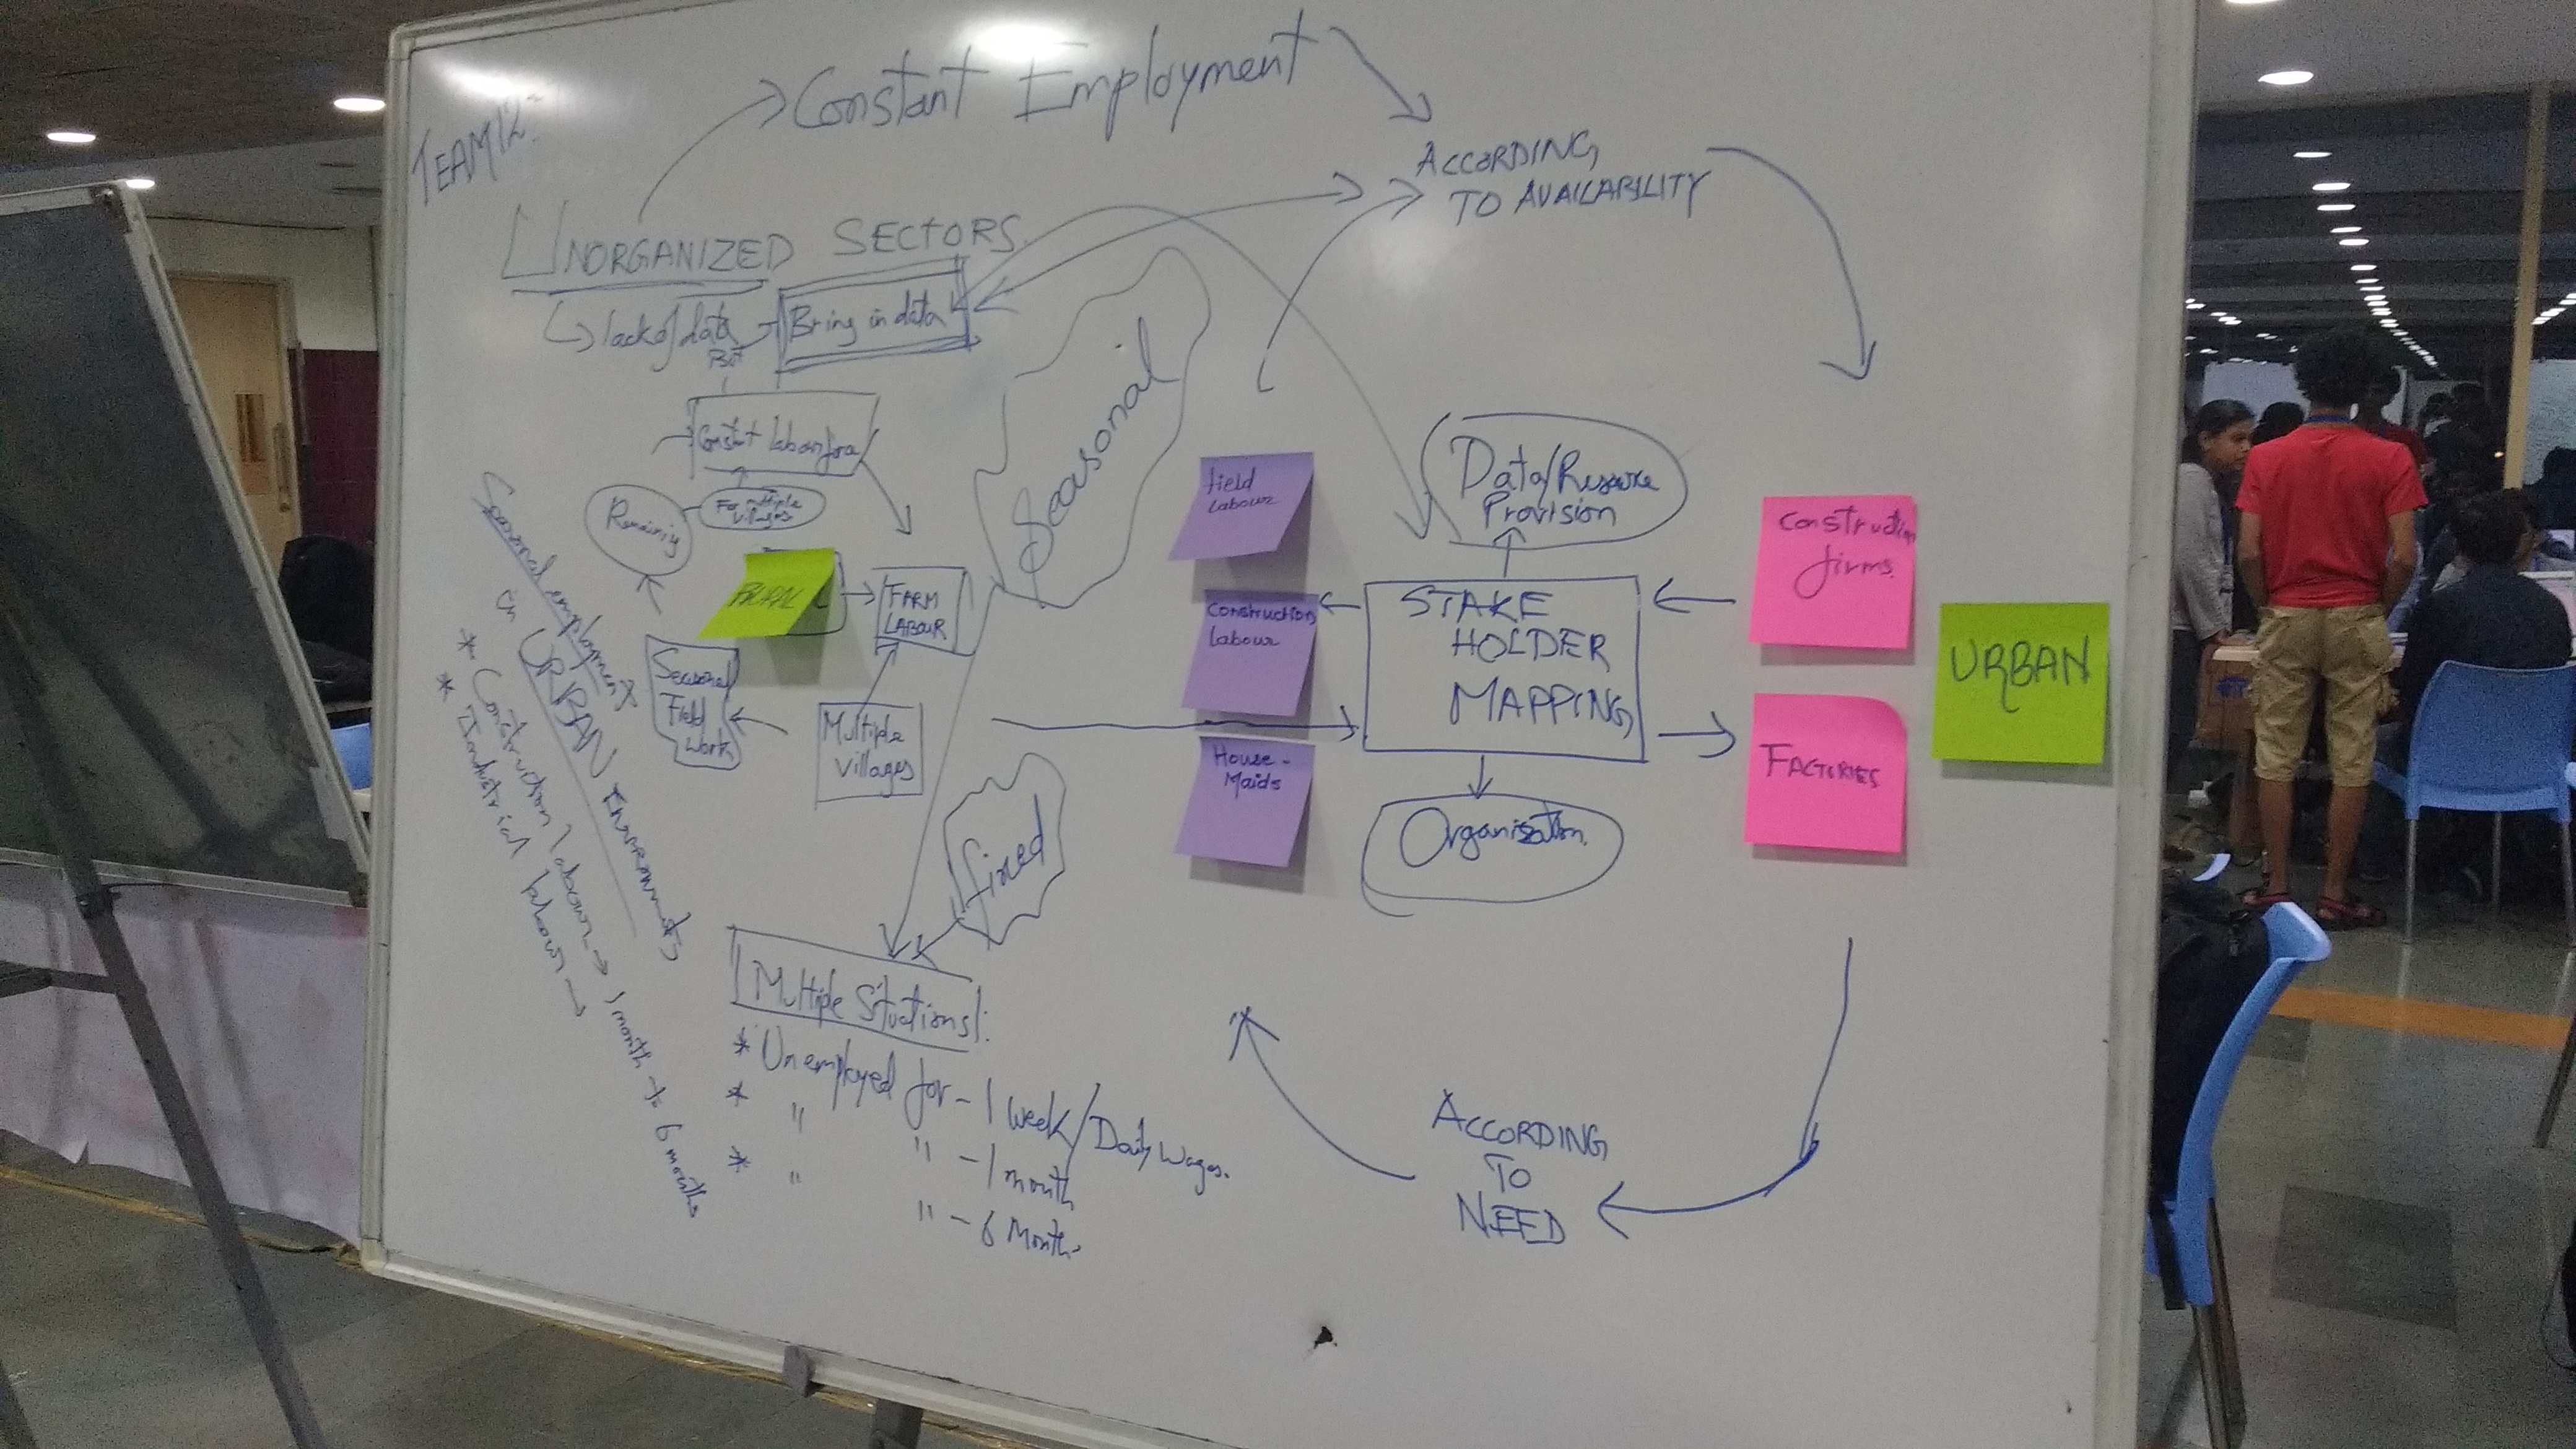 TEAM 12:
Constant Employment
ACCORDING
TO AVAILABILITY
UNORGANIZED SECTORS
lack of data
But
Bring in data
Constant
Remaining
For multiple
villages
RURAL
FARM
LABOUR
Seasonal
Field
Work
Multiple
Villages
Seasonal
fixed
Seasonal employment
in URBAN
* Construction labour → 1 month to 6 months
* Industrial labour →
Multiple Situations:
* Unemployed for - 1 week/Daily Wages.
* " " - 1 month
* " " - 6 Months
field
Labour
Construction
Labour
House-
Maids
Data/Resource
Provision
STAKE
HOLDER
MAPPING
Organisation
Construction
firms
FACTORIES
URBAN
ACCORDING
TO
NEED